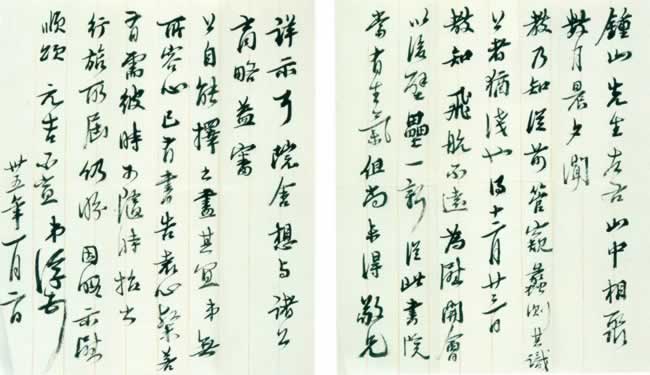 鍾山先生左右山中相聚
數月晨夕聞
教乃知從前管窺蠡測其識
公者猶淺也得十二月廿三日
教知飛航不遠為慰開會
以後壁壘一新從此書院
當有生氣但尚未得敬兄
詳示耳院舍想與諸公
商略益審
公自能擇之盡其宜弟無
所容心已有書告袁心粲善
有需彼時 隨時
行旅所屆仍盼 因風示慰
順頌 元吉不宣弟浮頓
卅五年一月二日